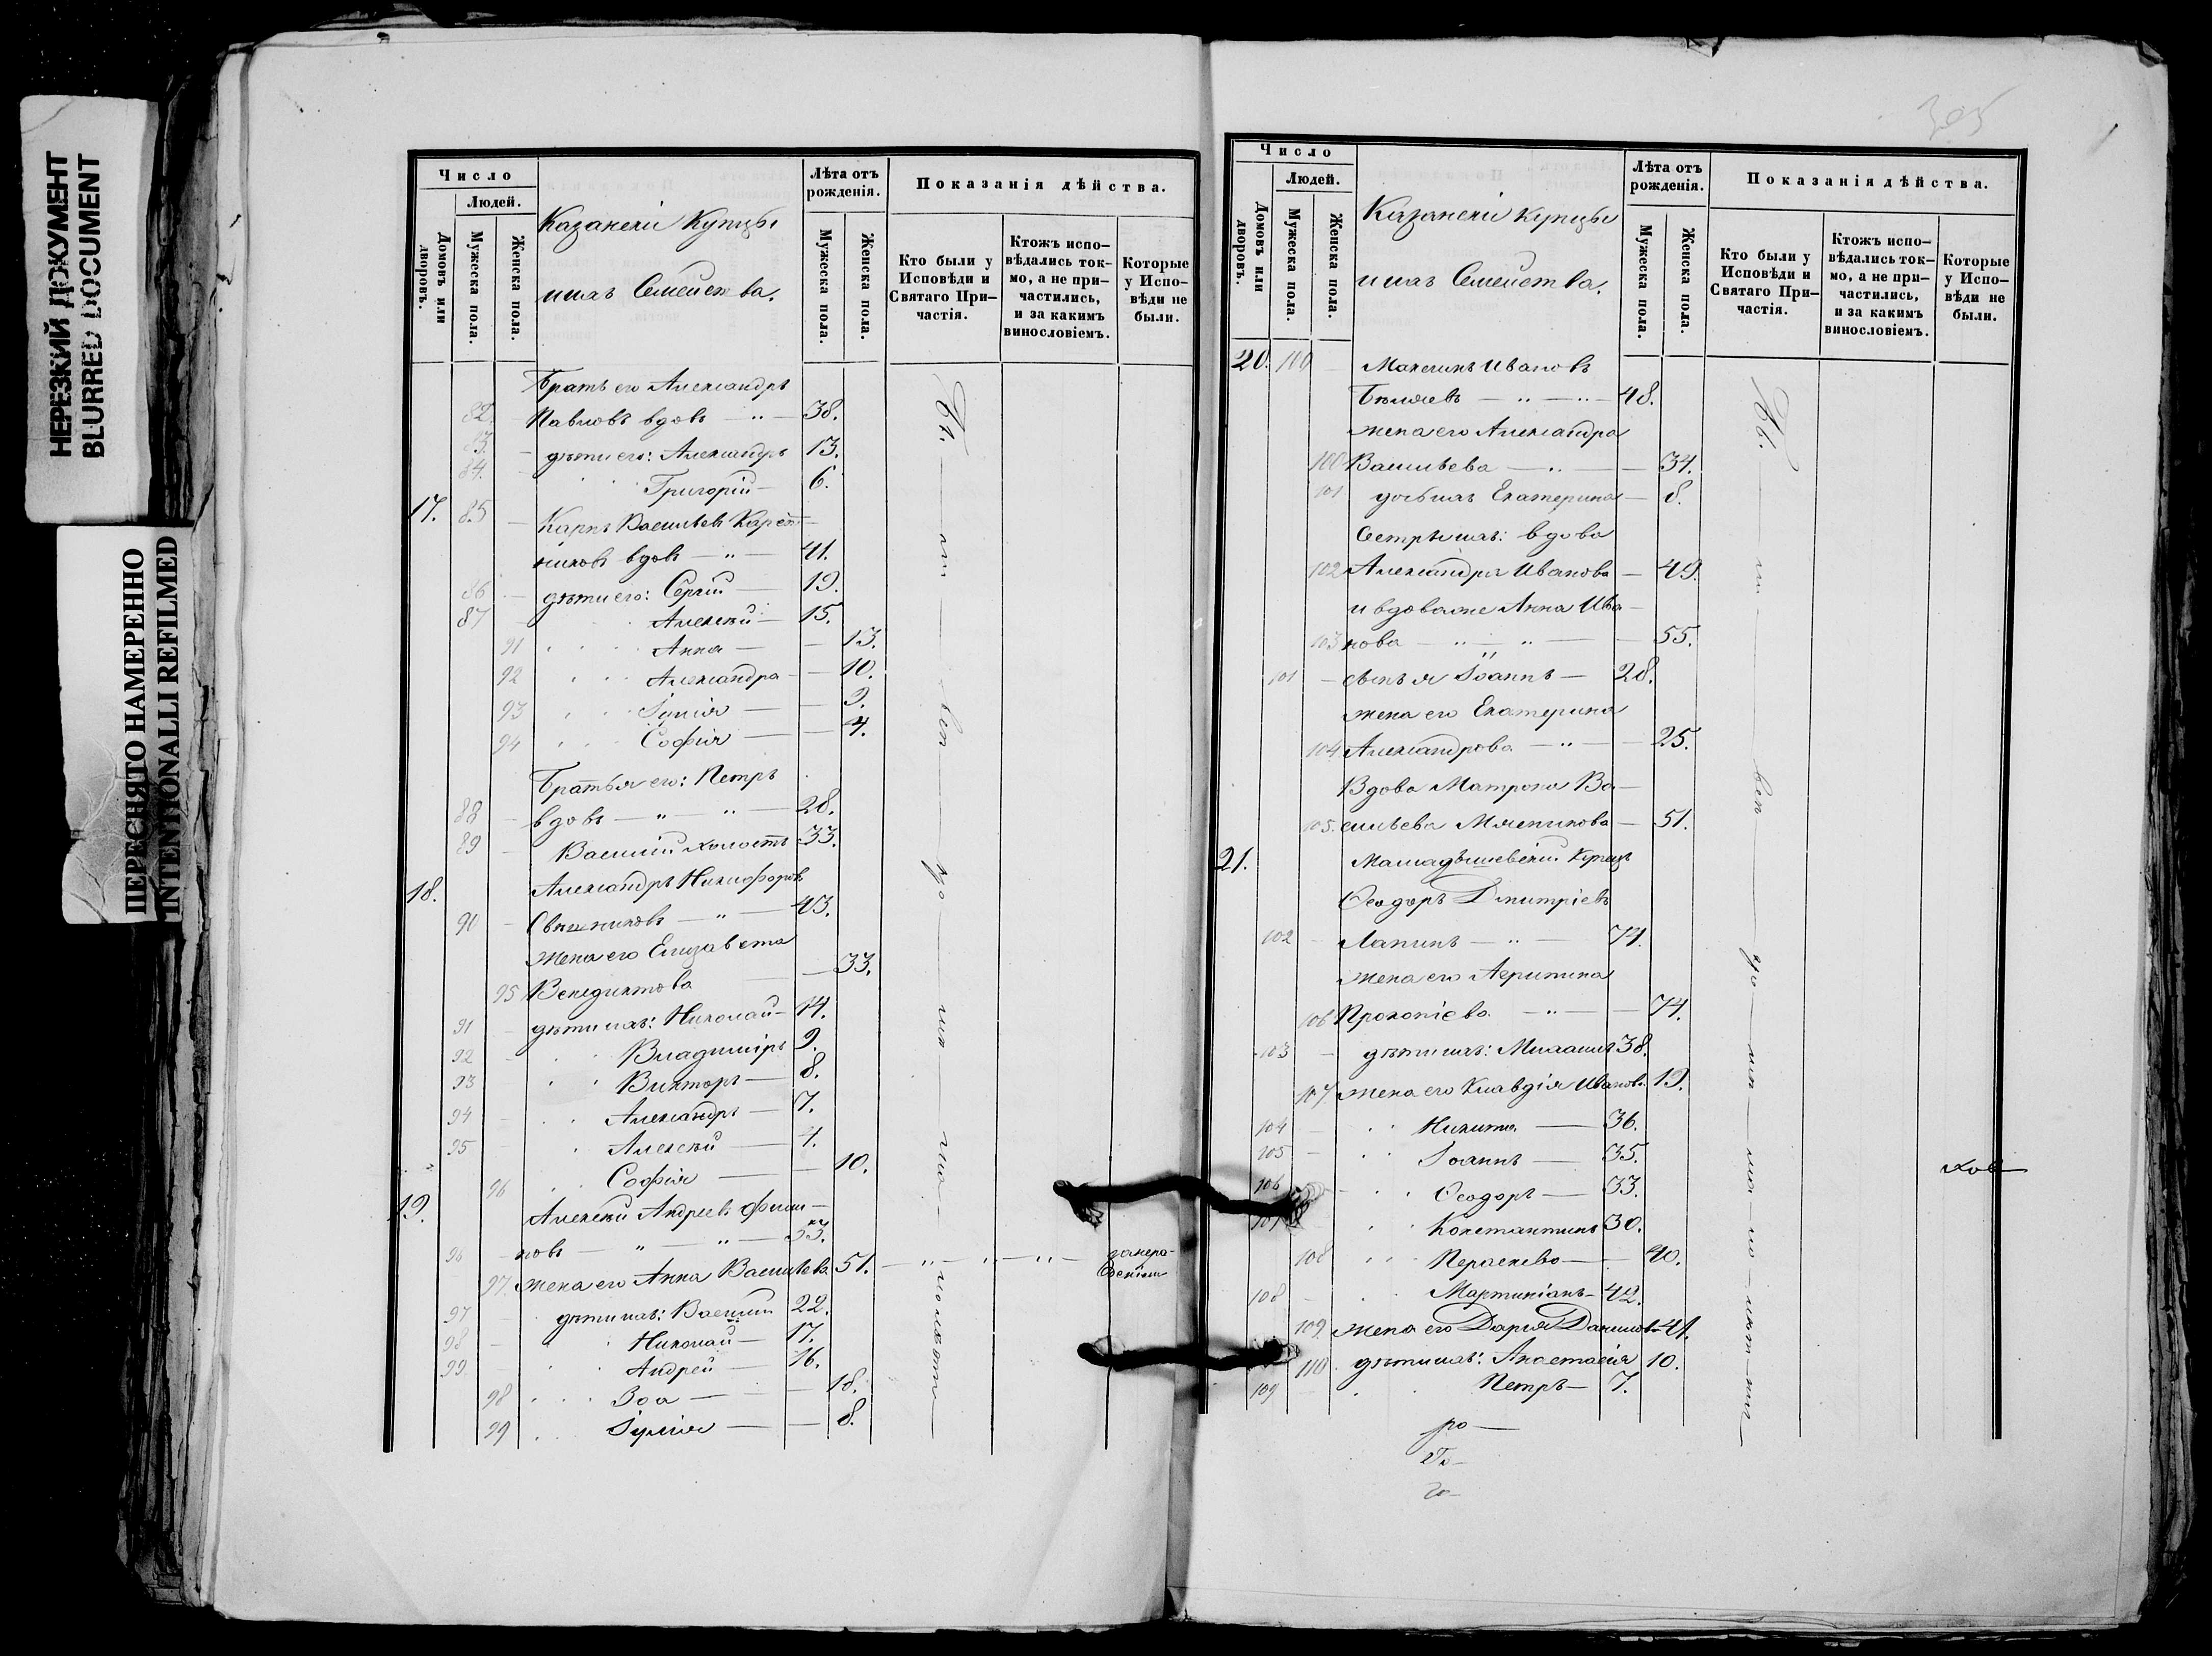 НЕРЕЗКИЙ ДОКУМЕНТ
BLURRED DOCUMENT
ПЕРЕСНЯТО НАМЕРЕННО
INTENTIONALLI REFILMED
Число
Людей.
Домовъ или дворовъ.
Мужеска пола.
Женска пола.
Казанскіи Купцы
и ихъ Семейства.
Лѣта отъ рожденія.
Мужеска пола.
Женска пола.
Показанія дѣйства.
Кто были у Исповѣди и Святаго Причастія.
Ктожъ испо-вѣдались ток-мо, а не при-частились, и за какимъ винословіемъ.
Которые у Испо-вѣди не были.
Братъ его Александръ
82. Павловъ вдовъ — " — 38.
83. — дѣти его: Александръ 13.
84. Григорій — 6.
17. 85 — Карпъ Васильевъ Карет-
никовъ вдовъ — " — 41.
86 — дѣти его: Сергій — 19.
87 Алексѣй — 15.
91 Анна — — 13.
92 Александра — — 10.
93 Іулія — — 9.
94 Софія — — 4.
Братья его: Петръ
88 — вдовъ — " — " — 28.
89 — Василій холостъ 33.
18. Александръ Никифоровъ
90 — Свѣшниковъ — " — 43.
жена его Елизавета
95 Венедиктова — 33.
91 — дѣти ихъ: Николай — 14.
92 Владиміръ 9.
93 Викторъ — 8.
94 Александръ — 7.
95 Алексѣй — 4.
96 Софія — — 10.
19. Алексѣй Андреевъ Фили-
96 — повъ — " — " — 53.
97. жена его Анна Васильева 51. — " — " — " —
97 — дѣти ихъ: Василій 22.
98 — Николай — 17.
99. Андрей — 16.
98 Зоа — — 18.
99 Іулія — — 8.
305
Число
Людей.
Домовъ или дворовъ.
Мужеска пола.
Женска пола.
Казанскіи Купцы
и ихъ Семейства.
Лѣта отъ рожденія.
Мужеска пола.
Женска пола.
Показанія дѣйства.
Кто были у Исповѣди и Святаго При-частія.
Ктожъ испо-вѣдались ток-мо, а не при-частились, и за какимъ винословіемъ.
Которые у Испо-вѣди не были.
20. 100 — Максимъ Ивановъ
Бѣляевъ — " — " — 48.
жена его Александра
100 Васильева — " — — 34.
101 дочь ихъ Екатерина — 8.
Сестры ихъ: вдова
102 Александра Иванова — 49.
и вдова же Анна Ива-
103 нова — " — " — — 55.
101 — сынъ ея Іоаннъ — 28.
жена его Екатерина
104 Александрова — " — — 25.
Вдова Матрона Ва-
105. сильева Мясникова — 51.
21. Малмыжскій Купецъ
Ѳеодоръ Дмитріевъ
102 — Лапинъ — " — 74.
жена его Агриппина
106 Прокопіева — " — — 74.
103 — дѣти ихъ: Михаилъ 38.
107 жена его Клавдія Иванова 19.
104 — Никита — 36.
105 — Іоаннъ — 35.
106 Ѳеодоръ — 33.
107 Константинъ 30.
108 Параскева — — 40.
108 — Мартиніанъ — 42.
109. жена его Дарія Данилова 41.
110. дѣти ихъ: Анастасія 10.
109 Петръ — 7.